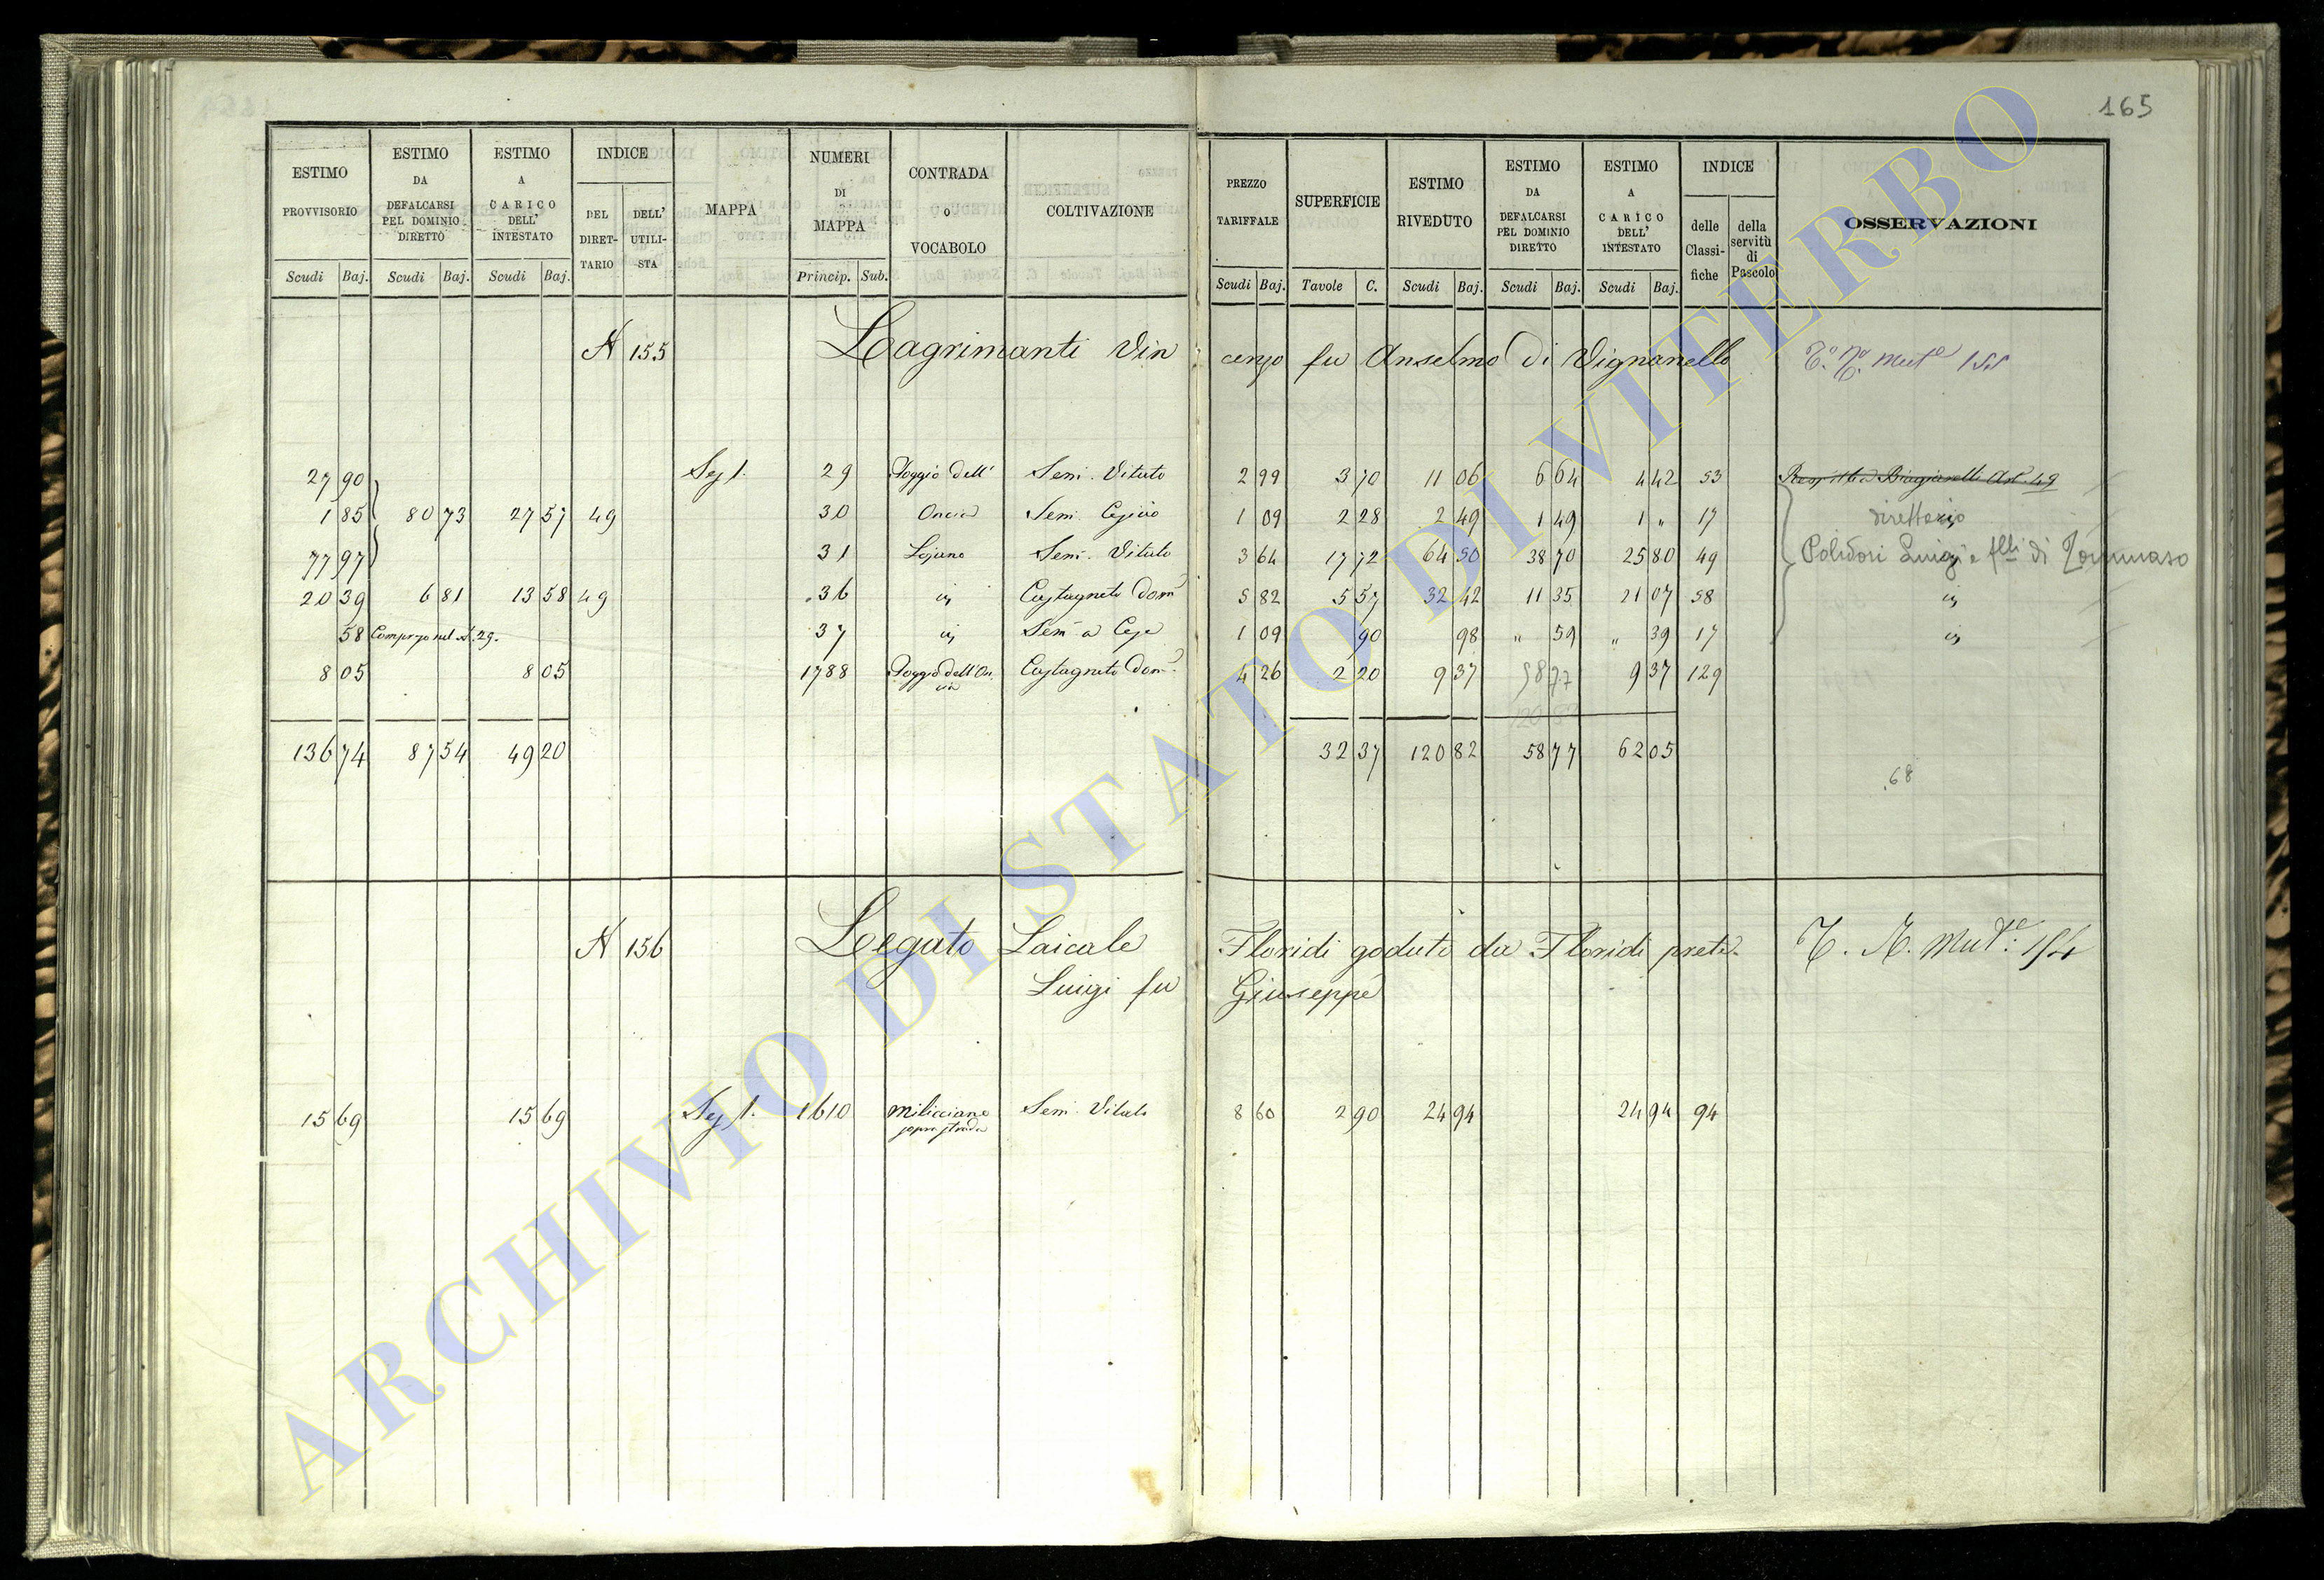 165
ESTIMO PROVVISORIO Scudi Baj. ESTIMO DA DEFALCARSI PEL DOMINIO DIRETTO Scudi Baj. ESTIMO A CARICO DELL' INTESTATO Scudi Baj. INDICE DEL DIRETTARIO DELL' UTILISTA MAPPA NUMERI DI MAPPA Princip. Sub. CONTRADA O VOCABOLO COLTIVAZIONE PREZZO TARIFFALE Scudi Baj. SUPERFICIE Tavole C. ESTIMO RIVEDUTO Scudi Baj. ESTIMO DA DEFALCARSI PEL DOMINIO DIRETTO Scudi Baj. ESTIMO A CARICO DELL' INTESTATO Scudi Baj. INDICE delle Classifiche della servitù di Pascolo OSSERVAZIONI
N 155 Lagrimanti Vincenzo fu Anselmo di Vignanello Mut.e 155
27 90 Sez 1. 29 Poggio dell' Sem. Vitato 2 99 3 70 11 06 6 64 4 42 53
1 85 80 73 27 57 49 30 Oncia Sem. 1 09 2 28 2 49 1 49 1 " 17 direttario
77 97 31 Lojano Sem. Vitato 3 64 17 72 64 50 38 70 25 80 49 Polidori Luigi e f.lli di Tommaso
20 39 6 81 13 58 49 36 Castagneto Dom. 5 82 5 57 32 42 11 35 21 07 58
58 Compreso nel N. 29. 37 Sem. a 1 09 90 98 " 59 " 39 17
8 05 8 05 1788 Poggio dell'Oncia Castagneto Dom. 4 26 2 20 9 37 58 77 9 37 129
120 82
136 74 87 54 49 20 32 37 120 82 58 77 62 05
68
N 156 Legato Laicale Floridi goduto da Floridi prete T. N. Mut.e 154
Luigi fu Giuseppe
15 69 15 69 Sez 1. 1610 Milicciano sopra strada Sem. Vitato 8 60 2 90 24 94 24 94 94
ARCHIVIO DI STATO DI VITERBO